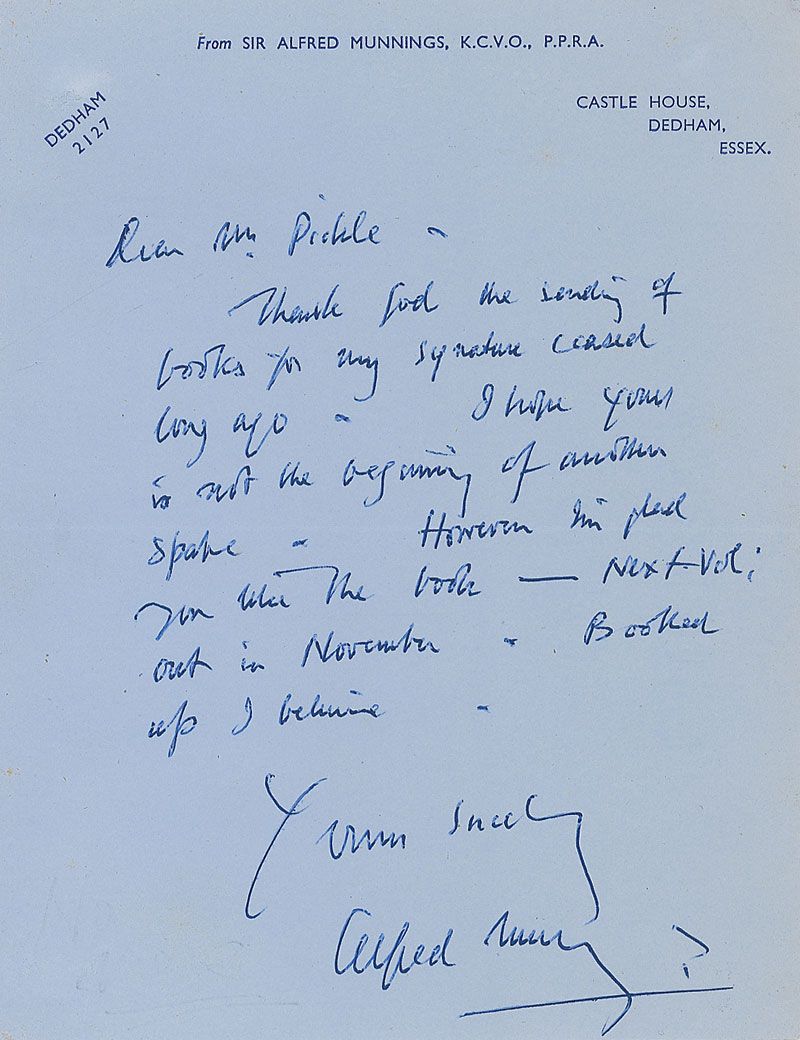 From SIR ALFRED MUNNINGS, K.C.V.O., P.P.R.A.
DEDHAM
2127
CASTLE HOUSE,
DEDHAM,
ESSEX.
Dear Mr. Pickle -
Thank God the sending of
books for my signature ceased
long ago - I hope yours
is not the beginning of another
spate - However I'm glad
you like the book — Next Vol:
out in November - Booked
up I believe -
Yours Sincely
Alfred Munnings